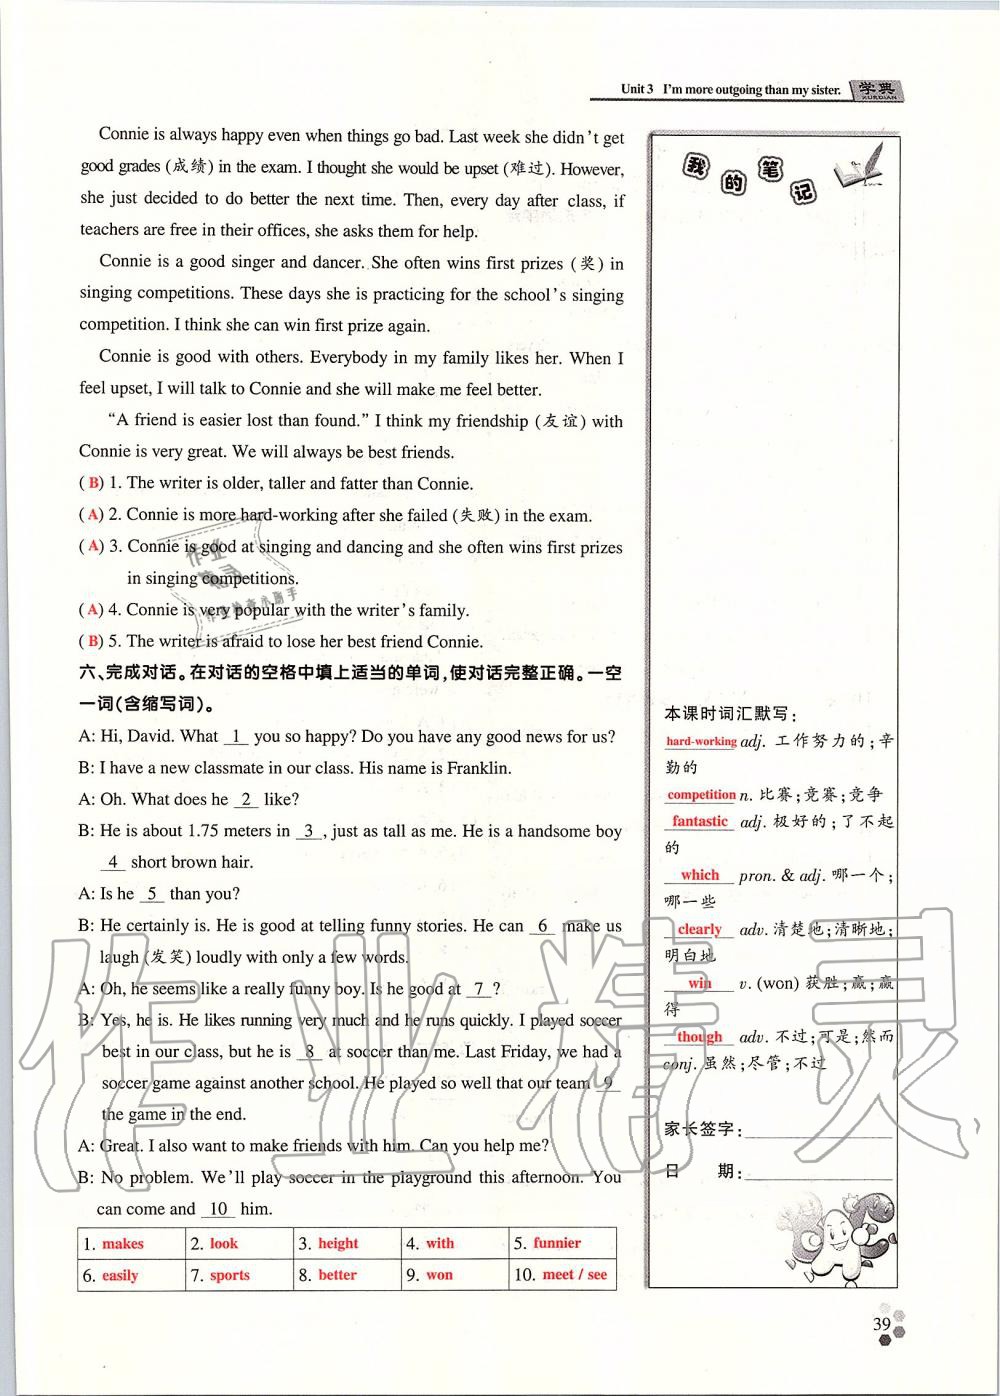 Unit 3 I'm more outgoing than my sister.
学典
XUEDIAN
Connie is always happy even when things go bad. Last week she didn't get
good grades (成绩) in the exam. I thought she would be upset (难过). However,
she just decided to do better the next time. Then, every day after class, if
teachers are free in their offices, she asks them for help.
Connie is a good singer and dancer. She often wins first prizes (奖) in
singing competitions. These days she is practicing for the school's singing
competition. I think she can win first prize again.
Connie is good with others. Everybody in my family likes her. When I
feel upset, I will talk to Connie and she will make me feel better.
"A friend is easier lost than found." I think my friendship (友谊) with
Connie is very great. We will always be best friends.
( B ) 1. The writer is older, taller and fatter than Connie.
( A ) 2. Connie is more hard-working after she failed (失败) in the exam.
( A ) 3. Connie is good at singing and dancing and she often wins first prizes
in singing competitions.
( A ) 4. Connie is very popular with the writer's family.
( B ) 5. The writer is afraid to lose her best friend Connie.
六、完成对话。在对话的空格中填上适当的单词,使对话完整正确。一空
一词(含缩写词)。
A: Hi, David. What 1 you so happy? Do you have any good news for us?
B: I have a new classmate in our class. His name is Franklin.
A: Oh. What does he 2 like?
B: He is about 1.75 meters in 3 , just as tall as me. He is a handsome boy
4 short brown hair.
A: Is he 5 than you?
B: He certainly is. He is good at telling funny stories. He can 6 make us
laugh (发笑) loudly with only a few words.
A: Oh, he seems like a really funny boy. Is he good at 7 ?
B: Yes, he is. He likes running very much and he runs quickly. I played soccer
best in our class, but he is 8 at soccer than me. Last Friday, we had a
soccer game against another school. He played so well that our team 9
the game in the end.
A: Great. I also want to make friends with him. Can you help me?
B: No problem. We'll play soccer in the playground this afternoon. You
can come and 10 him.
1. makes 2. look 3. height 4. with 5. funnier
6. easily 7. sports 8. better 9. won 10. meet / see
我的笔记
本课时词汇默写:
hard-working adj. 工作努力的;辛
勤的
competition n. 比赛;竞赛;竞争
fantastic adj. 极好的;了不起
的
which pron. & adj. 哪一个;
哪一些
clearly adv. 清楚地;清晰地;
明白地
win v. (won) 获胜;赢;赢
得
though adv. 不过;可是;然而
conj. 虽然;尽管;不过
家长签字:
日 期:
39
作业精灵